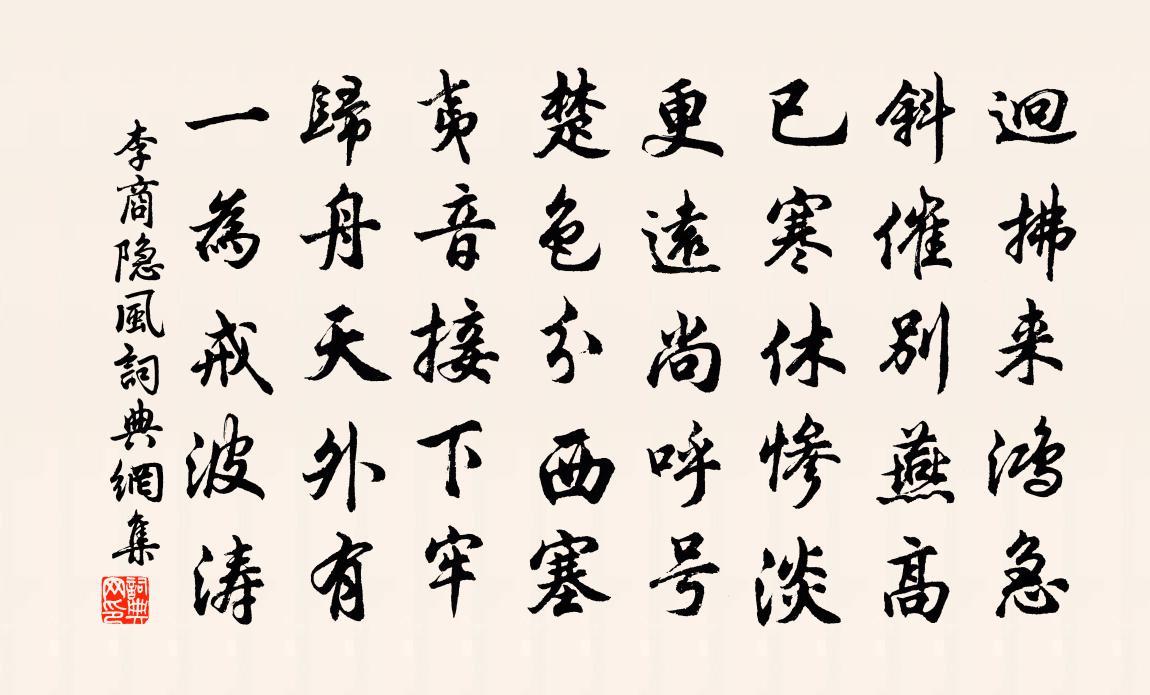 迴拂来鸿急
斜催别燕高
已寒休惨淡
更遠尚呼号
楚色分西塞
夷音接下牢
歸舟天外有
一為戒波涛
李商隐風詞典網集
詞典網印